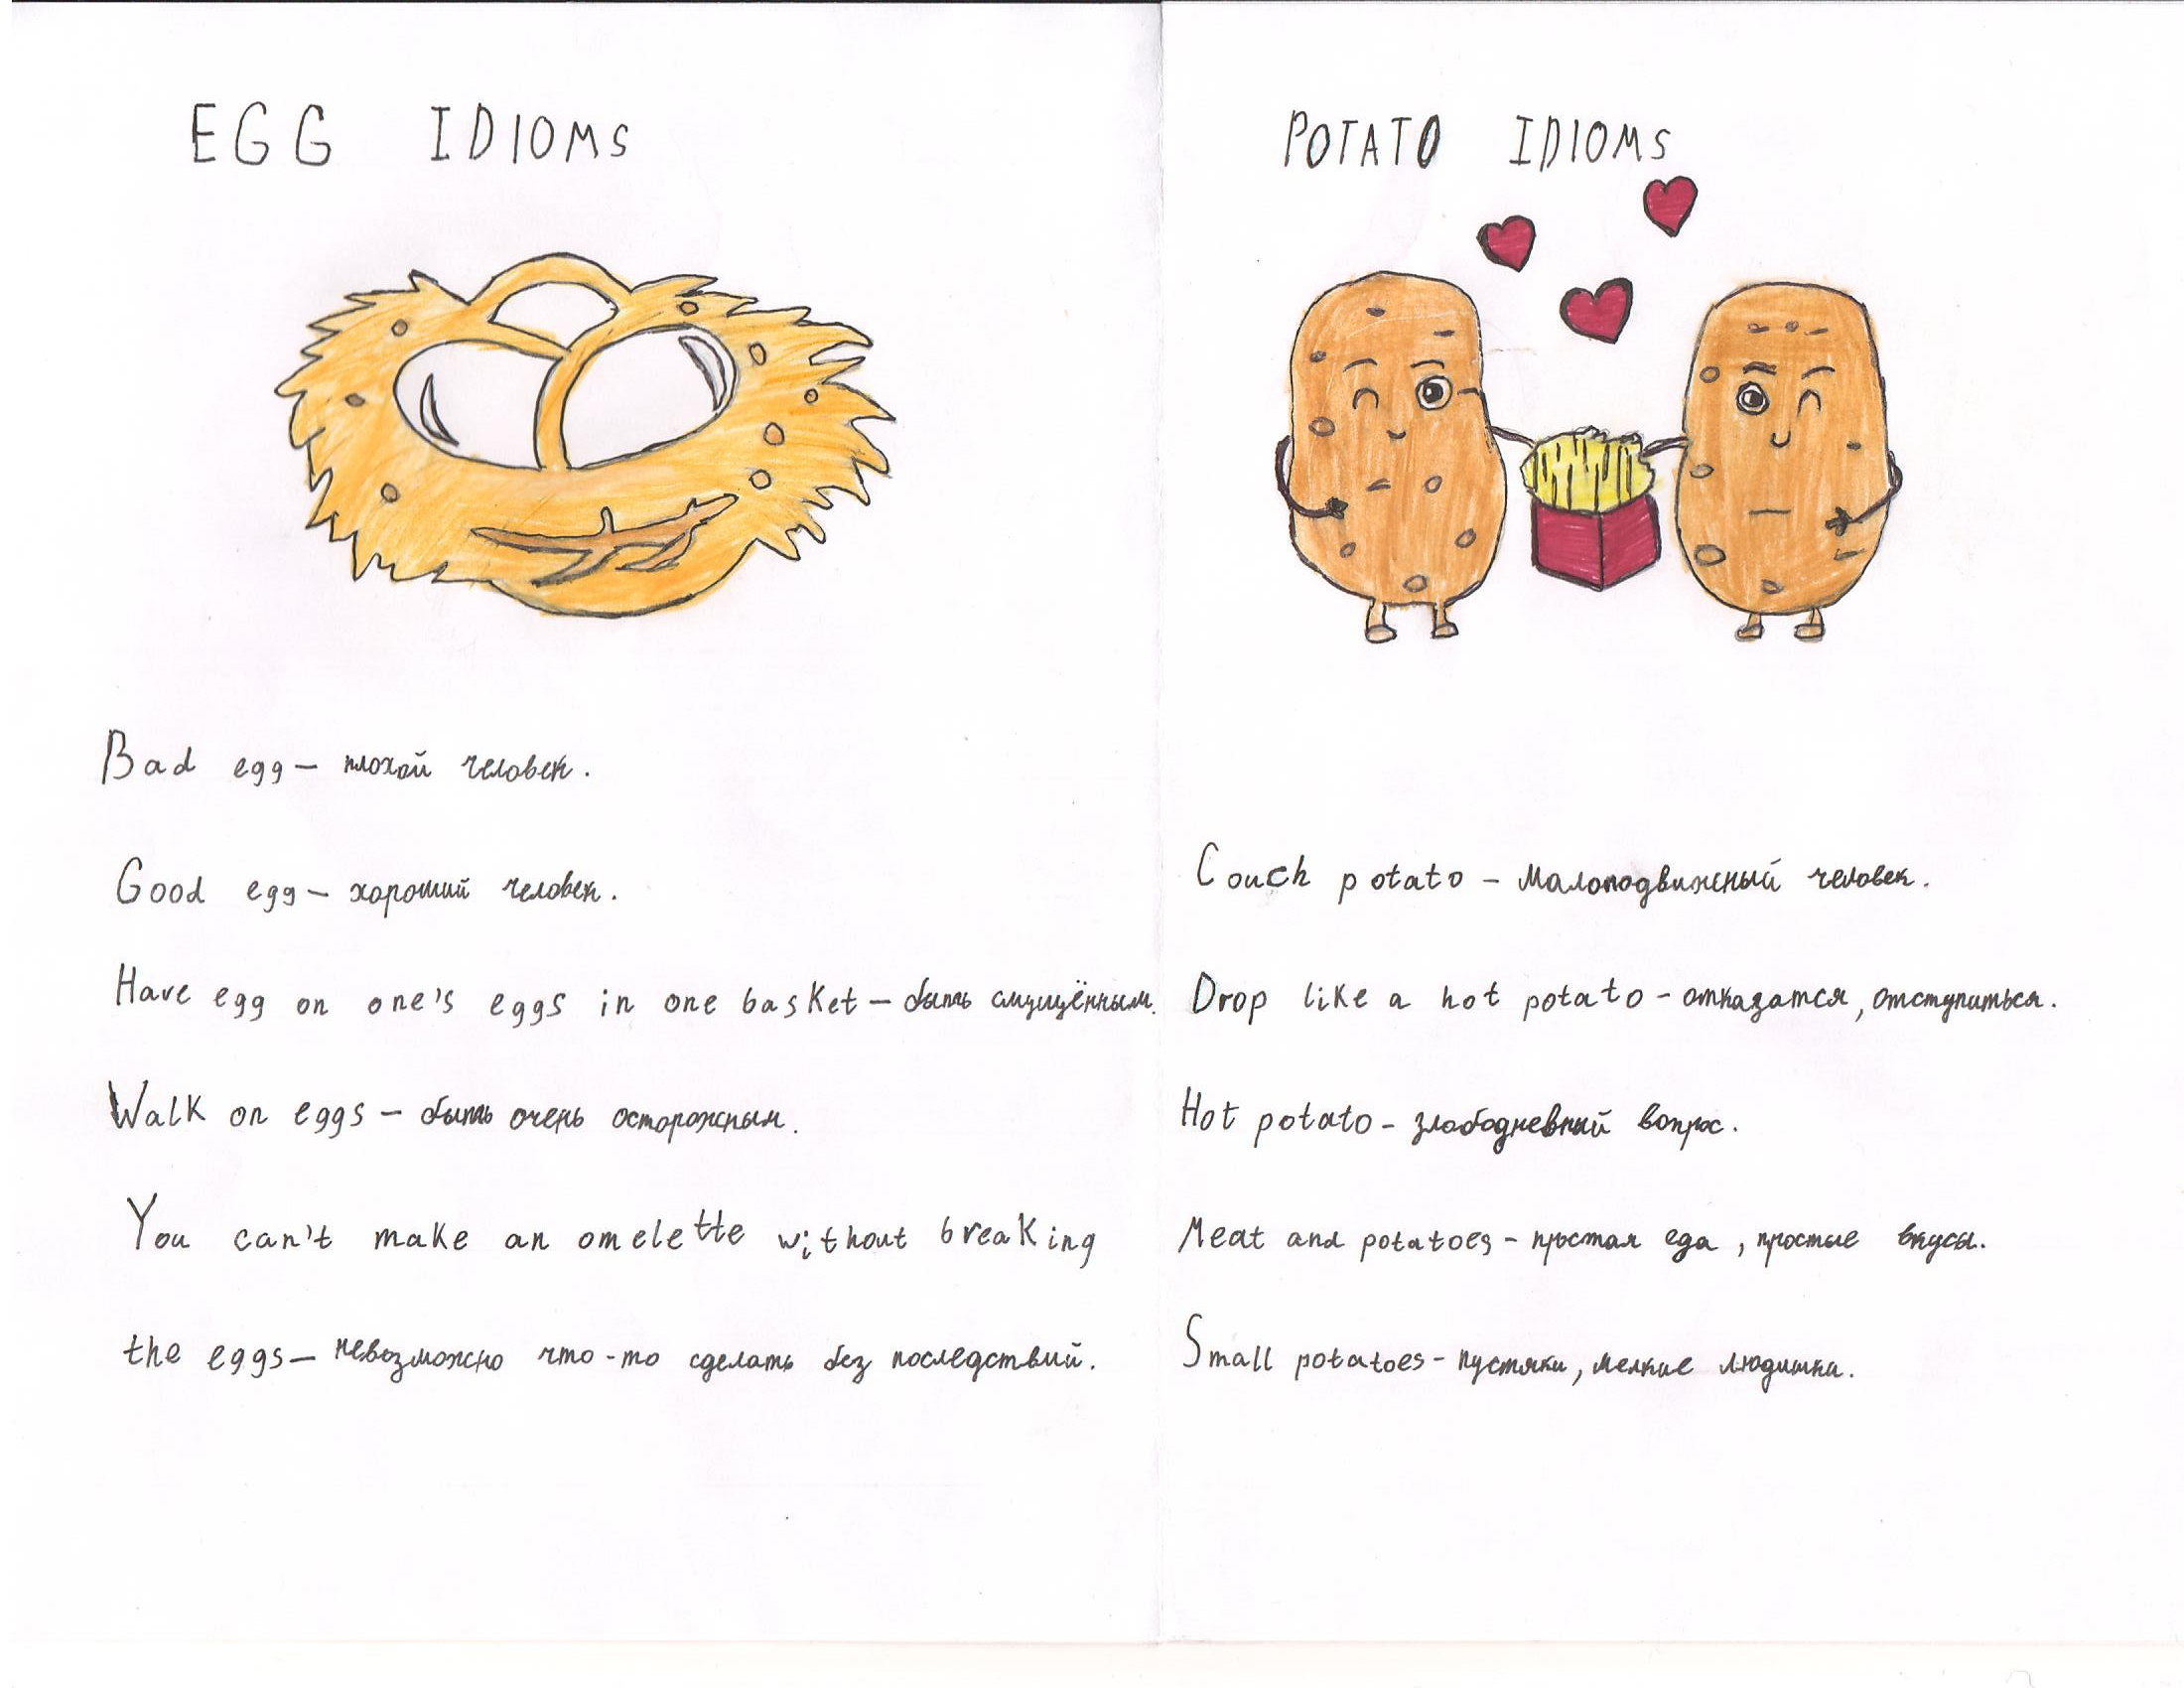 EGG IDIOMS
Bad egg – плохой человек.
Good egg – хороший человек.
Have egg on one's eggs in one basket – быть смущённым.
Walk on eggs – быть очень осторожным.
You can't make an omelette without breaking
the eggs – невозможно что-то сделать без последствий.
POTATO IDIOMS
Couch potato – малоподвижный человек.
Drop like a hot potato – отказатся, отступиться.
Hot potato – злободневный вопрос.
Meat and potatoes – простая еда, простые вкусы.
Small potatoes – пустяки, мелкие людишки.